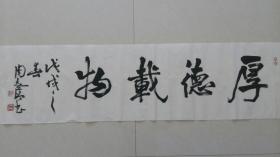 厚德載物
戊戌之
春